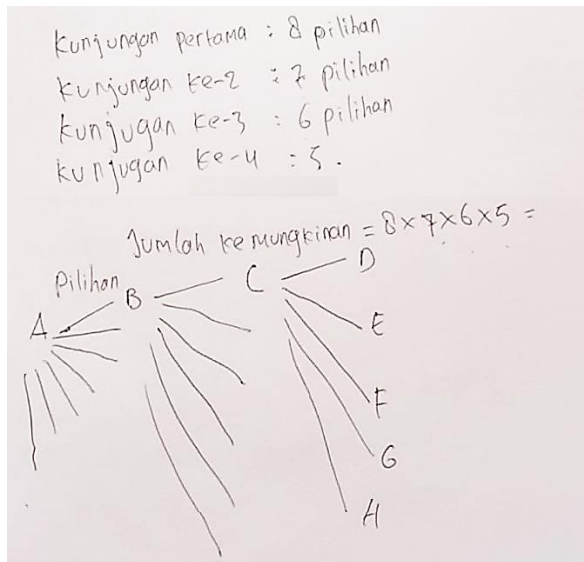 Kunjungan pertama : 8 pilihan
Kunjungan ke-2 : 7 pilihan
Kunjugan ke-3 : 6 pilihan
Kunjugan ke-4 : 5.
Jumlah kemungkinan = 8x7x6x5 =
Pilihan
A B C D
E
F
G
H